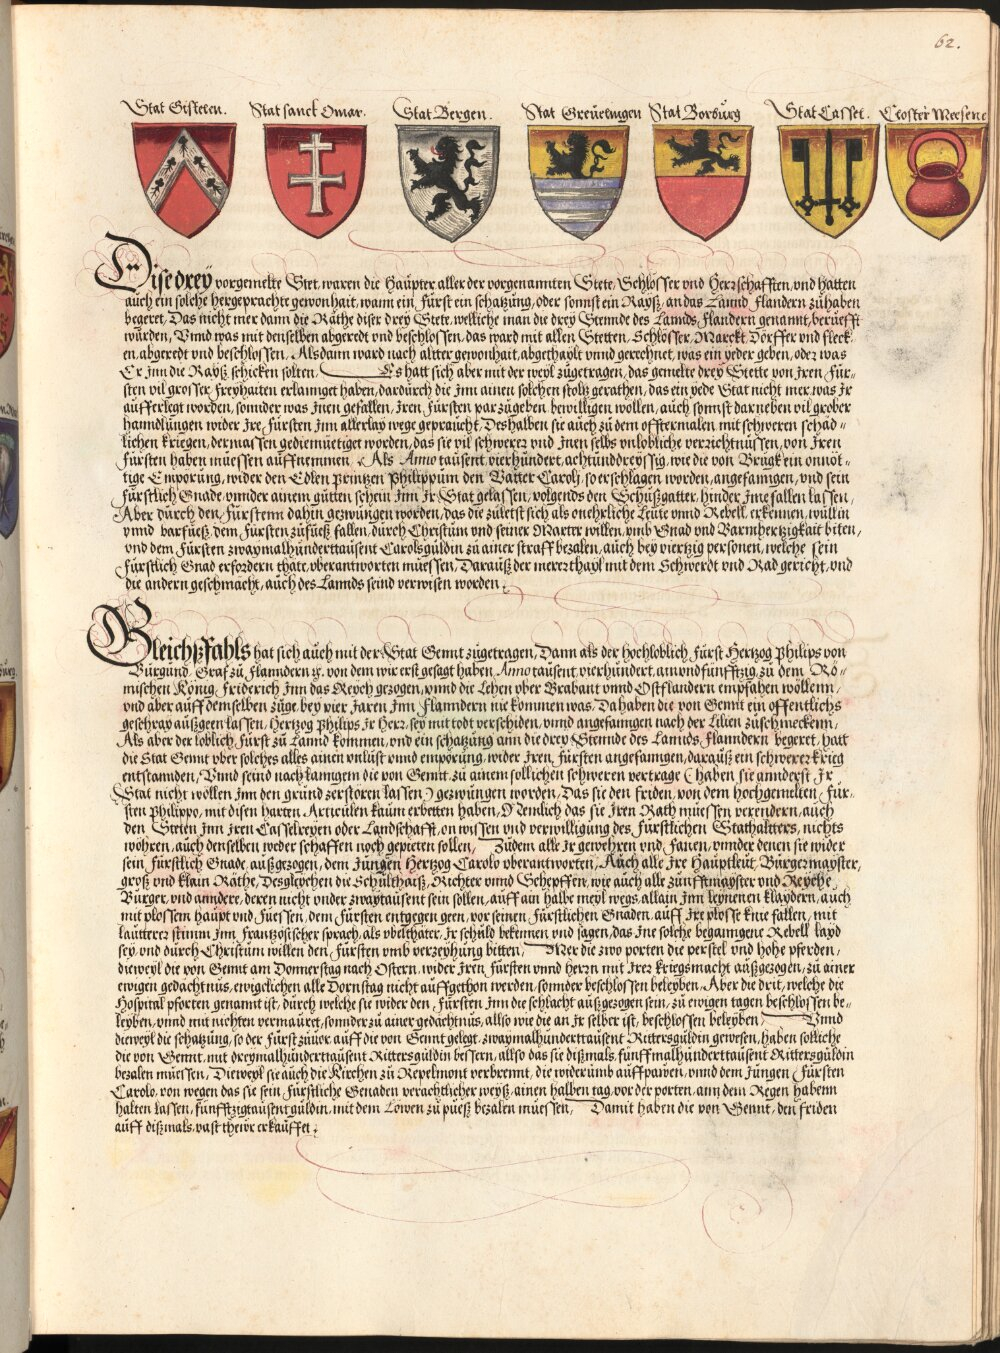 62.
Stat Gistelen. Stat sanct Omar. Stat Bergen. Stat Greuelingen Stat Borburg Stat Cassel. Closter Meesene
Dise drey vorgemelte Stet, waren die Haüpter aller der vorgenannten Stete, Schlösser vnd Herrschafften, vnd hatten
auch ein solche hergeprachte gewonhait, wann ein Fürst ein schatzung, oder sonnst ein Rayß, an das Lannd Flandern zühaben
begeret, Das nicht mer dann die Räthe diser drey Stete, welliche man die drey Stennde des Lannds Flandern genannt, berüefft
würden, Vnnd was mit denselben abgeredt vnd beschlossen, das ward mit allen Stetten, Schlösser, Marckt, Dörffer vnd fleck
en, abgeredt vnd beschlossen, Alsdann ward nach altter gewonhait, abgethaylt vnnd gerechnet, was ein yeder geben, oder was
Er jnn die Rayß schicken solten, Es hatt sich aber mit der weyl zügetragen, das gemelte drey Stette von jren Für⸗
sten vil grosser Freyhaiten erlannget haben, dardürch die jnn ainen solchen stoltz gerathen, das ein yede Stat nicht mer was jr
aüfferlegt worden, sonnder was jnen gefallen, jren Fürsten darzügeben bewilligen wollen, aüch sonnst darneben vil grober
hanndlüngen wider jre Fürsten jnn allerlay wege gepraucht, Deshalben sie aüch zü dem offtermalen mit schweren schäd⸗
lichen kriegen, dermassen gediemüetiget worden, das sie vil schwerer vnd jnen selbs vnlobliche verzichtnüssen, von jren
Fürsten haben müessen aüffnemmen, Als Anno taüsent, vierhündert, achtünddreyssig, wie die von Brügk ein onnöt⸗
tige Empörüng, wider den Edlen Printzen Philippüm den Vatter Caroly, so erschlagen worden, angefanngen, vnd sein
Fürstlich Gnade vnnder ainem gütten schein jnn jr Stat gelassen, volgends den Schüßgatter, hinder jme fallen lassen,
Aber dürch den Fürstenn dahin gezwüngen worden, das die zületst sich als onehrliche Leüte vnnd Rebell erkennen, wüllin
vnnd barfüeß, dem Fürsten züfüeß fallen, dürch Christüm vnd seiner Marter willen, vmb Gnad vnd Barmhertzigkait biten,
vnd dem Fürsten zwaymalhünderttaüsent Carolsgüldin zü ainer straff bezalen, aüch bey viertzig personen, welche sein
Fürstlich Gnad erfordern thäte, vberantworten müessen, Daraüß der merer thayl mit dem Schwerdt vnd Rad gericht, vnd
die andern geschmächt, aüch des Lannds seind verwisen worden.
Gleichßfahls hat sich aüch mit der Stat Gennt zügetragen, Dann als der hochloblich Fürst Hertzog Philips von
Bürgünd, Graf zü Flanndern ꝛc. von dem wir erst gesagt haben, Anno taüsent, vierhündert, ainvndfünfftzig, zü dem Rö⸗
mischen König Friderich jnn das Reych gezogen, vnnd die Lehen vber Brabant vnnd Ostflandern empfahen wöllenn,
vnd aber aüff demselben züge, bey vier jaren jnn Flanndern nie kommen was, Da haben die von Gennt ein offentlichs
geschray aüßgeen lassen, Hertzog Philips jr Herr, sey mit todt verschiden, vnnd angefanngen nach der Lilien züschmeckenn,
Als aber der loblich Fürst zü Lannd kommen, vnd ein schatzüng ann die drey Stennde des Lannds Flanndern begeret, hatt
die Stat Gennt vber solches alles ainen vnlüst vnnd empörüng, wider jren Fürsten angefanngen, daraüß ein schwerer krieg
entstannden, Vnnd seind nach lanngem die von Gennt, zü ainem sollichen schweren vertrage (haben sie annderst jr
Stat nicht wöllen jnn den gründ zerstoren lassen) gezwüngen worden, Das sie den friden, von dem hochgemelten Für⸗
sten Philippo, mit disen harten Articülen kaüm erbetten haben, Nemlich das sie jren Rath müessen verendern, aüch
den Steten jnn jren Casselreyen oder Landschafft, on wissen vnd verwilligüng des Fürstlichen Stathalters, nichts
wöhren, aüch denselben weder schaffen noch gepieten sollen, Züdem alle jr gewehren vnd Fanen, vnnder denen sie wider
sein Fürstlich Gnade, aüßgezogen, dem Jüngen Hertzog Carolo vberantworten, Aüch alle jre Haüptleüt, Bürgermayster,
groß vnd klain Räthe, Desgleychen die Schülthaiß, Richter vnnd Schepffen, wie aüch alle zünfftmayster vnd Reyche
Bürger, vnd anndere, deren nicht vnder zwaytaüsent sein sollen, aüff ain halbe meyl wegs, allain jnn leynenen klaydern, aüch
mit plossem haüpt vnd füessen, dem Fürsten entgegen geen, vor seinen Fürstlichen Gnaden, aüff jre plosse knie fallen, mit
laütterer stimm jnn Frantzösischer sprach, als vbelthäter, jr schüld bekennen vnd sagen, das jne solche beganngene Rebell layd
sey, vnd dürch Christüm willen den Fürsten vmb verzeyhüng bitten, Mer die zwo porten die perstel vnd hohe pferden,
dieweyl die von Gennt am Donnerstag nach Ostern, wider jren Fürsten vnnd herrn mit jrer kriegsmacht aüßgezogen, zü ainer
ewigen gedächtnüs, ewigclichen alle Dornstag nicht aüffgethon werden, sonnder beschlossen beleyben, Aber die drit, welche die
Hospital pforten genannt ist, dürch welche sie wider den Fürsten jnn die schlacht aüßgezogen sein, zü ewigen tagen beschlossen be⸗
leyben, vnnd mit nichten vermaüret, sonnder zü ainer gedächtnüs, allso wie die an jr selber ist, beschlossen beleyben, Vnnd
dieweyl die schatzüng, so der Fürst züuor aüff die von Gennt gelegt, zwaymalhünderttaüsent Rittersgüldin gewesen, haben solliche
die von Gennt, mit dreymalhünderttaüsent Rittersgüldin bessern, allso das sie dißmals, fünffmalhünderttaüsent Rittersgüldin
bezalen müessen, Dieweyl sie aüch die Kirchen zü Repelmont verbrennt, die widerümb aüffpawen, vnnd dem Jüngen Fürsten
Carolo, von wegen das sie sein Fürstliche Genaden verachtlicher weyß, ainen halben tag, vor der porten, ann dem Regen habenn
halten lassen, fünfftzigtaüsent güldin, mit dem Löwen zü püeß bezalen müessen, Damit haben die von Gennt, den friden
aüff dißmals, vast theür erkaüffet.